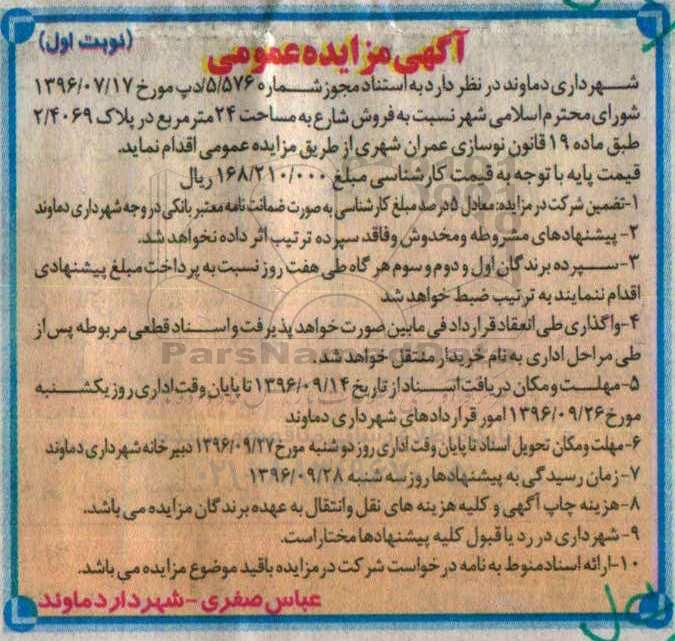 (نوبت اول)
آگهی مزایده عمومی
شهرداری دماوند در نظر دارد به استناد مجوز شماره ۵/۵۷۶/دپ مورخ ۱۳۹۶/۰۷/۱۷
شورای محترم اسلامی شهر نسبت به فروش شارع به مساحت ۲۴ مترمربع در پلاک ۲/۴۰۶۹
طبق ماده ۱۹ قانون نوسازی عمران شهری از طریق مزایده عمومی اقدام نماید.
قیمت پایه با توجه به قیمت کارشناسی مبلغ ۱۶۸/۲۱۰/۰۰۰ ریال
۱-تضمین شرکت در مزایده: معادل ۵درصد مبلغ کارشناسی به صورت ضمانت نامه معتبر بانکی در وجه شهرداری دماوند
۲- پیشنهادهای مشروطه ومخدوش وفاقد سپرده ترتیب اثر داده نخواهد شد.
۳-سپرده برندگان اول و دوم و سوم هر گاه طی هفت روز نسبت به پرداخت مبلغ پیشنهادی
اقدام ننمایند به ترتیب ضبط خواهد شد
۴-واگذاری طی انعقاد قرارداد فی مابین صورت خواهد پذیرفت و اسناد قطعی مربوطه پس از
طی مراحل اداری به نام خریدار منتقل خواهد شد.
۵-مهلت و مکان دریافت اسناد از تاریخ ۱۳۹۶/۰۹/۱۴ تا پایان وقت اداری روز یکشنبه
مورخ ۱۳۹۶/۰۹/۲۶ امور قراردادهای شهرداری دماوند
۶-مهلت ومکان تحویل اسناد تا پایان وقت اداری روز دوشنبه مورخ ۱۳۹۶/۰۹/۲۷ دبیرخانه شهرداری دماوند
۷-زمان رسیدگی به پیشنهادها روز سه شنبه ۱۳۹۶/۰۹/۲۸
۸-هزینه چاپ آگهی و کلیه هزینه های نقل وانتقال به عهده برندگان مزایده می باشد.
۹- شهرداری در رد یا قبول کلیه پیشنهادها مختار است.
۱۰-ارائه اسناد منوط به نامه درخواست شرکت در مزایده باقید موضوع مزایده می باشد.
عباس صفری - شهردار دماوند
ParsNamadData